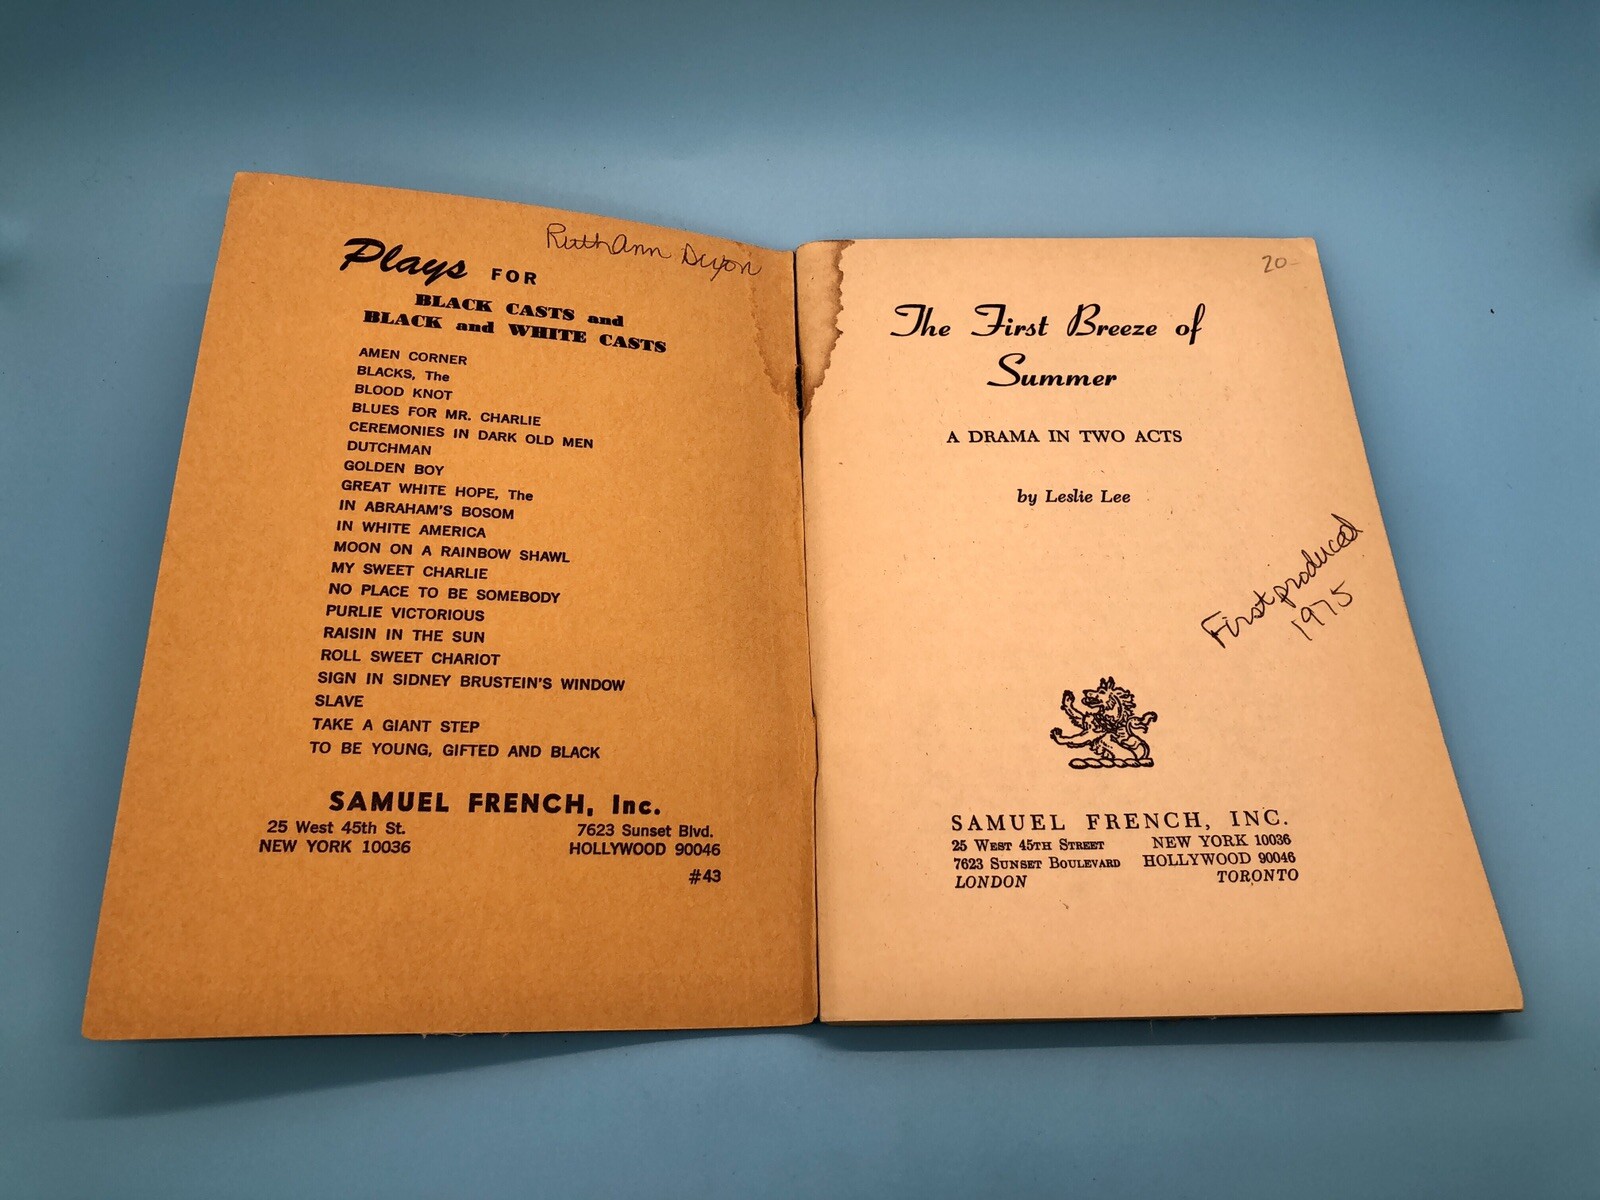 RuthAnn Dixon
Plays FOR
BLACK CASTS and
BLACK and WHITE CASTS
AMEN CORNER
BLACKS, The
BLOOD KNOT
BLUES FOR MR. CHARLIE
CEREMONIES IN DARK OLD MEN
DUTCHMAN
GOLDEN BOY
GREAT WHITE HOPE, The
IN ABRAHAM'S BOSOM
IN WHITE AMERICA
MOON ON A RAINBOW SHAWL
MY SWEET CHARLIE
NO PLACE TO BE SOMEBODY
PURLIE VICTORIOUS
RAISIN IN THE SUN
ROLL SWEET CHARIOT
SIGN IN SIDNEY BRUSTEIN'S WINDOW
SLAVE
TAKE A GIANT STEP
TO BE YOUNG, GIFTED AND BLACK
SAMUEL FRENCH, Inc.
25 West 45th St. 7623 Sunset Blvd.
NEW YORK 10036 HOLLYWOOD 90046
#43
20-
The First Breeze of
Summer
A DRAMA IN TWO ACTS
by Leslie Lee
First produced
1975
SAMUEL FRENCH, INC.
25 WEST 45TH STREET NEW YORK 10036
7623 SUNSET BOULEVARD HOLLYWOOD 90046
LONDON TORONTO